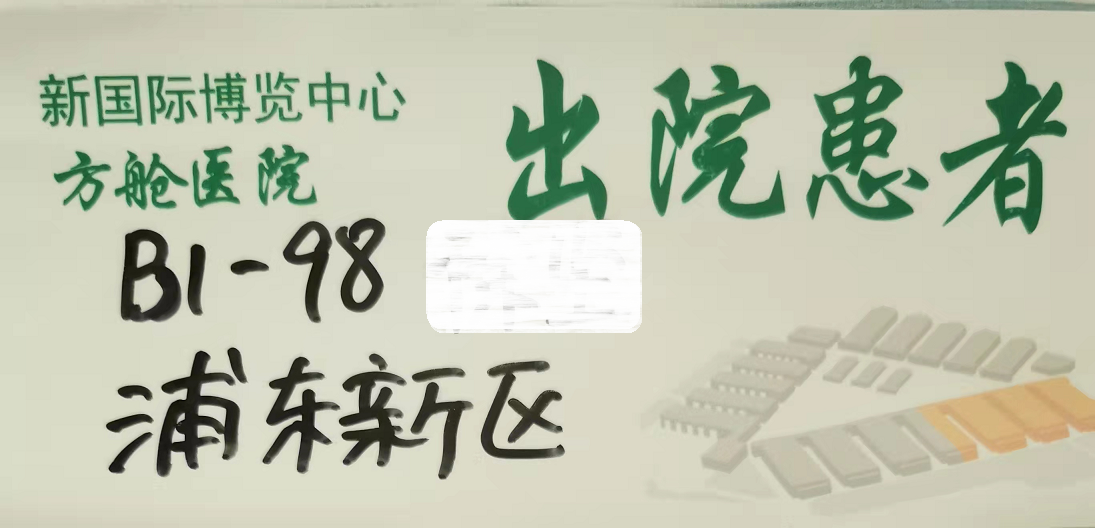 新国际博览中心
方舱医院
出院患者
B1-98
浦东新区